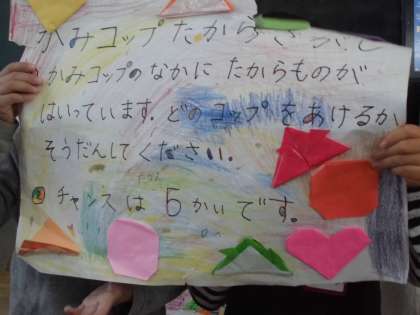 かみコップたからさがし
かみコップのなかに たからものが
はいっています。どのコップをあけるか
そうだんしてください。
チャンスは5かいです。